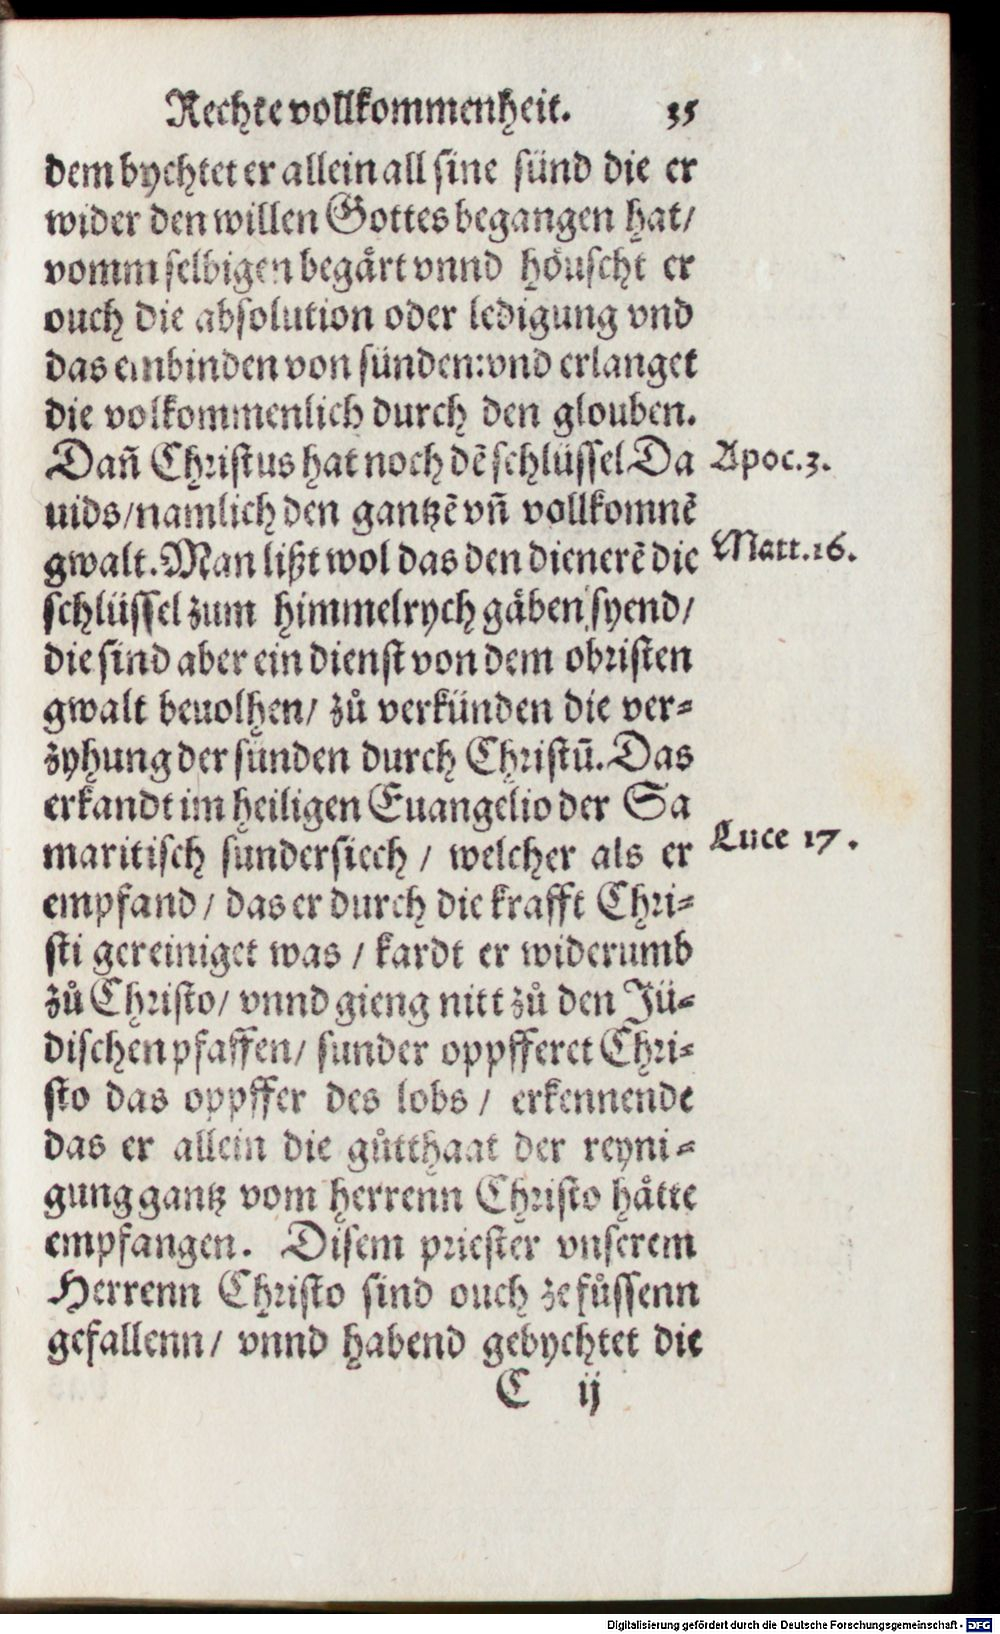 Rechte vollkommenheit. 35
dem bychtet er allein all sine sünd die er
wider den willen Gottes begangen hat/
vomm selbigen begårt vnnd höuscht er
ouch die absolution oder ledigung vnd
das embinden von sünden:vnd erlanget
die volkommenlich durch den glouben.
Dañ Christus hat noch dẽ schlüssel Da Apoc.3.
uids/namlich den gantzẽ vñ vollkomnẽ
gwalt.Man lißt wol das den dienerẽ die Matt.16.
schlüssel zum himmelrych gåben syend/
die sind aber ein dienst von dem obristen
gwalt beuolhen/ zů verkünden die ver-
zyhung der sünden durch Christũ.Das
erkandt im heiligen Euangelio der Sa
maritisch sundersiech / welcher als er Luce 17.
empfand/ das er durch die krafft Chri-
sti gereiniget was / kardt er widerumb
zů Christo/ vnnd gieng nitt zů den Jü-
dischen pfaffen/ sunder oppfferet Chri-
sto das oppffer des lobs / erkennende
das er allein die gůtthaat der reyni-
gung gantz vom herrenn Christo håtte
empfangen. Disem priester vnserem
Herrenn Christo sind ouch ze fůssenn
gefallenn/ vnnd habend gebychtet die
C ij
Digitalisierung gefördert durch die Deutsche Forschungsgemeinschaft - DFG